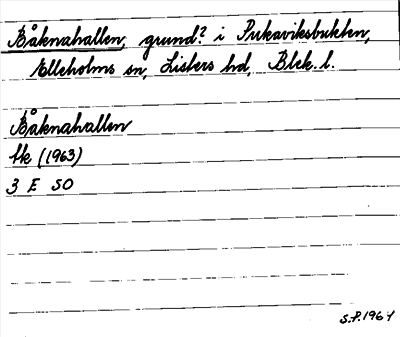 Båknahallen, grund? i Pukaviksbukten,
Elleholms sn, Listers hd, Blek. l.
Båknahallen
Sk (1963)
3 E SO
S.P. 1964